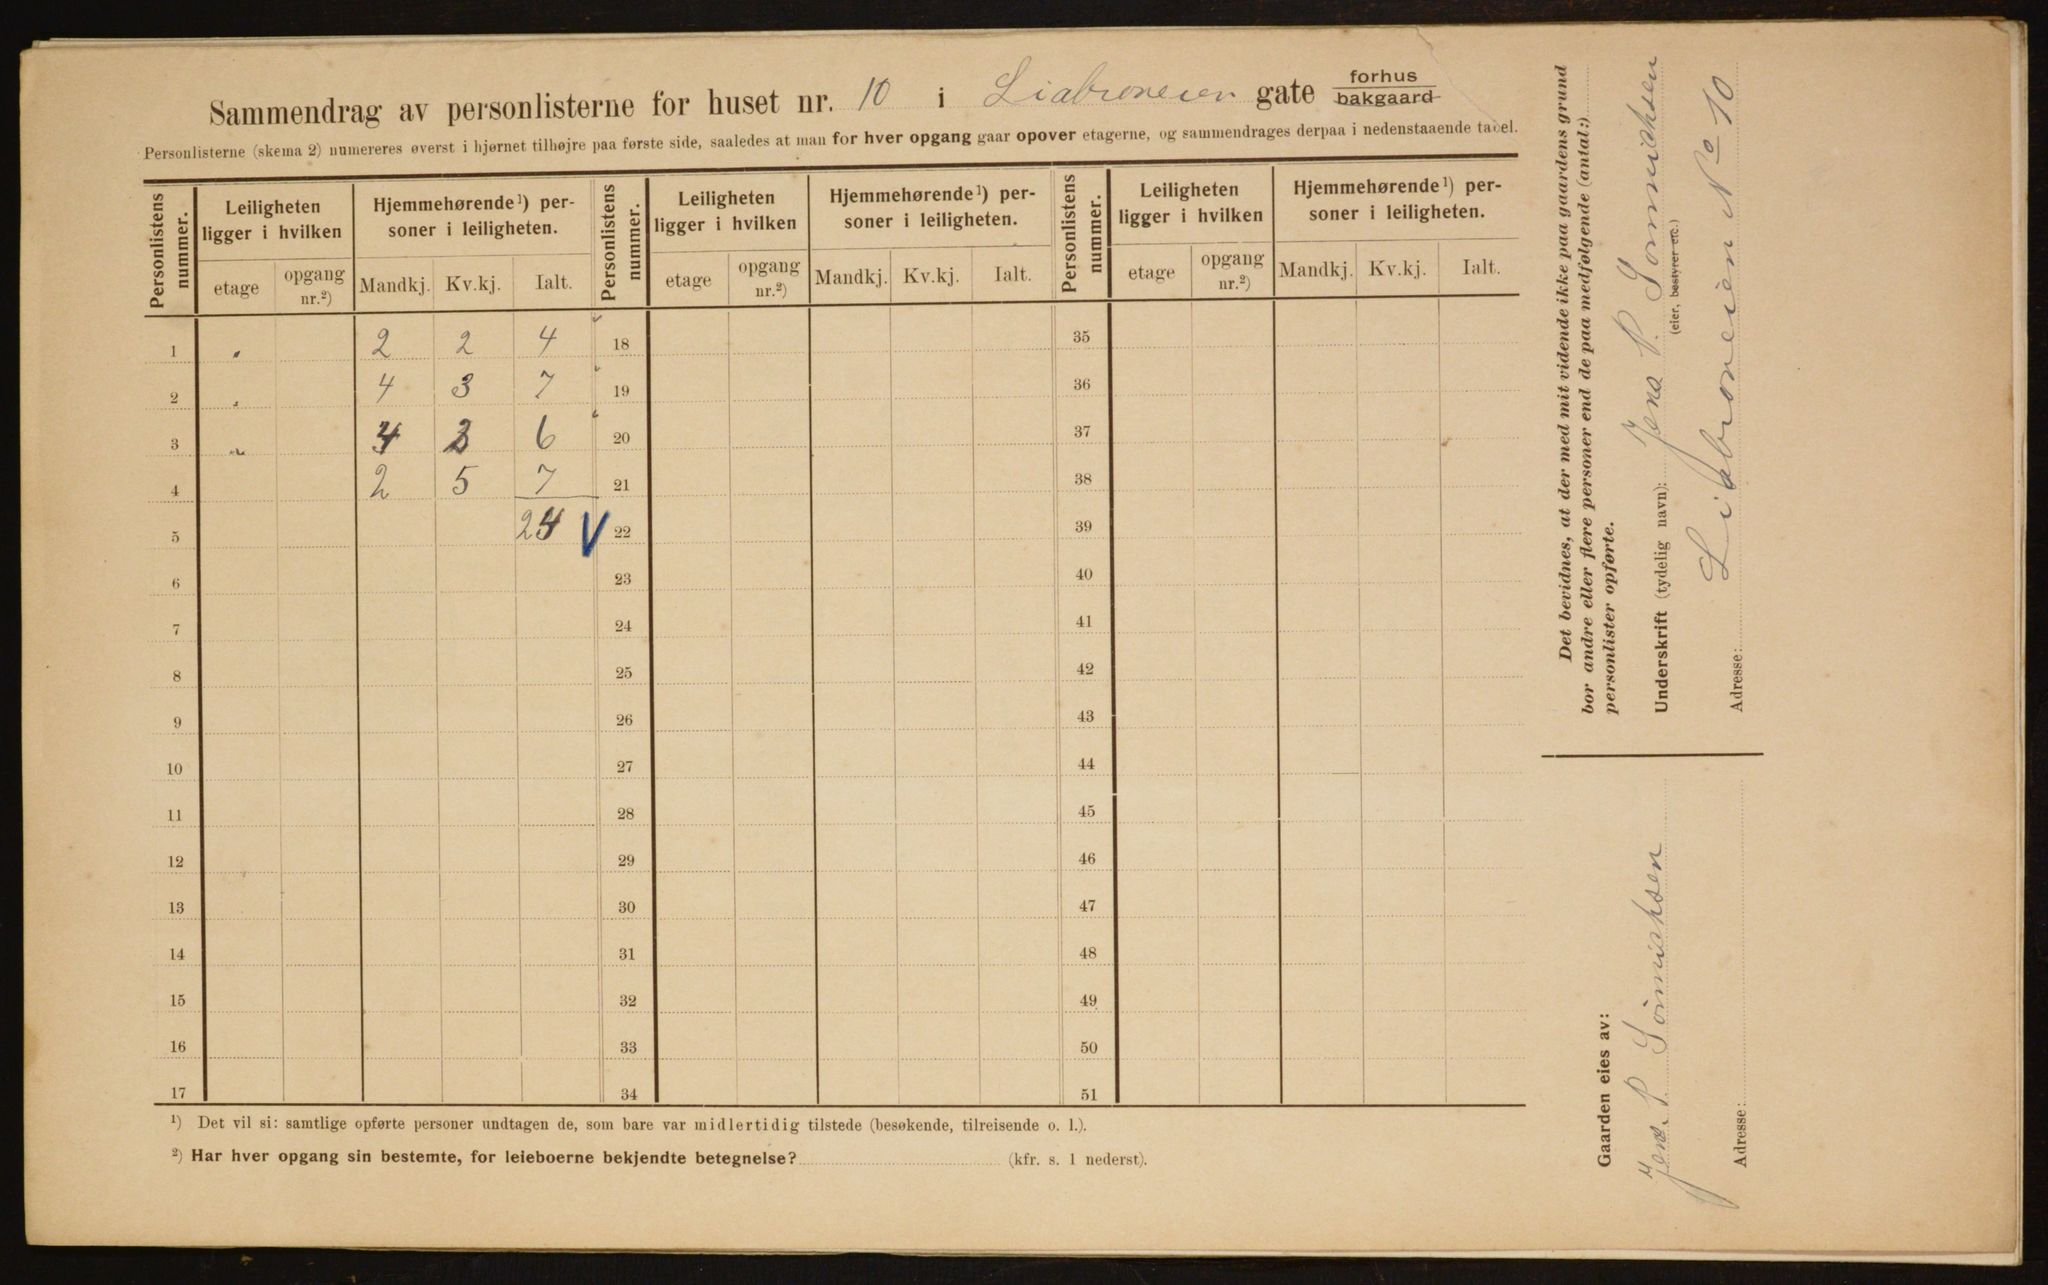 Sammendrag av personlisterne for huset nr. 10 i Liabroveien gate forhus bakgaard
Personlisterne (skema 2) numereres øverst i hjørnet tilhøjre paa første side, saaledes at man for hver opgang gaar opover etagerne, og sammendrages derpaa i nedenstaaende tabel.
Personlistens nummer. Leiligheten ligger i hvilken Hjemmehørende¹) personer i leiligheten. Personlistens nummer. Leiligheten ligger i hvilken Hjemmehørende¹) personer i leiligheten. Personlistens nummer. Leiligheten ligger i hvilken Hjemmehørende¹) personer i leiligheten.
etage opgang nr.²) Mandkj. Kv.kj. Ialt. etage opgang nr.²) Mandkj. Kv.kj. Ialt. etage opgang nr.²) Mandkj. Kv.kj. Ialt.
1 " 2 2 4 18 35
2 " 4 3 7 19 36
3 " 4 2 6 20 37
4 2 5 7 21 38
5 24 22 39
6 23 40
7 24 41
8 25 42
9 26 43
10 27 44
11 28 45
12 29 46
13 30 47
14 31 48
15 32 49
16 33 50
17 34 51
¹) Det vil si: samtlige opførte personer undtagen de, som bare var midlertidig tilstede (besøkende, tilreisende o. l.).
²) Har hver opgang sin bestemte, for leieboerne bekjendte betegnelse? (kfr. s. 1 nederst).
Det bevidnes, at der med mit vidende ikke paa gaardens grund
bor andre eller flere personer end de paa medfølgende (antal:)
personlister opførte.
Underskrift (tydelig navn): Jens P.
(eier, bestyrer etc.)
Adresse: Liabroveien No 10
Gaarden eies av:
Jens P.
Adresse: